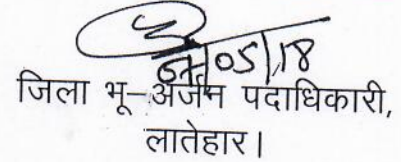 05/18
जिला भू–अर्जन पदाधिकारी,
लातेहार।